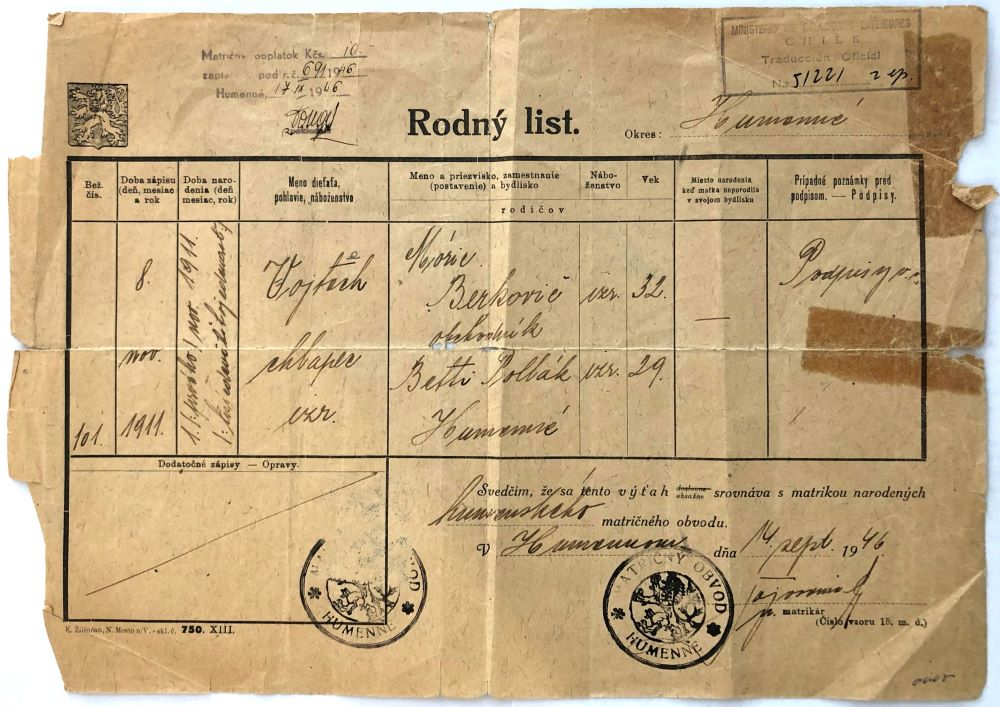 Matričný poplatok Kčs 10.-
zapl. pod r.č. 691/1946
Humenné, 17 IX 1946
MINISTERIO DE RELACIONES EXTERIORES
CHILE
Traducción Oficial
No. 51221 2 ep.
Rodný list.
Okres: Humenné
Bež. čís.
Doba zápisu (deň, mesiac a rok
Doba narodenia (deň mesiac, rok)
Meno dieťaťa, pohlavie, náboženstvo
Meno a priezvisko, zamestnanie (postavenie) a bydlisko
Náboženstvo
Vek
rodičov
Miesto narodenia keď matka neporodila v svojom bydlisku
Prípadné poznámky pred podpisom. — Podpisy.
101.
8.
nov.
1911.
1. /: prvého :/ nov. 1911.
Vojtech
chlapec
izr.
Móric
Berkovič izr. 32.
obchodník
Betti Pollák izr. 29.
Humenné
—
Podpisy
Dodatočné zápisy — Opravy.
Svedčím, že sa tento výťah doslovne obsažne srovnáva s matrikou narodených
humenského matričného obvodu.
V Humennom dňa 14 sept. 1946.
matrikár
(Číslo vzoru 15. m. d.)
OBVOD
HUMENNÉ
MATRIČNÝ OBVOD
HUMENNÉ
E. Žilinčan, N. Mesto n/V. - skl. č. 750. XIII.